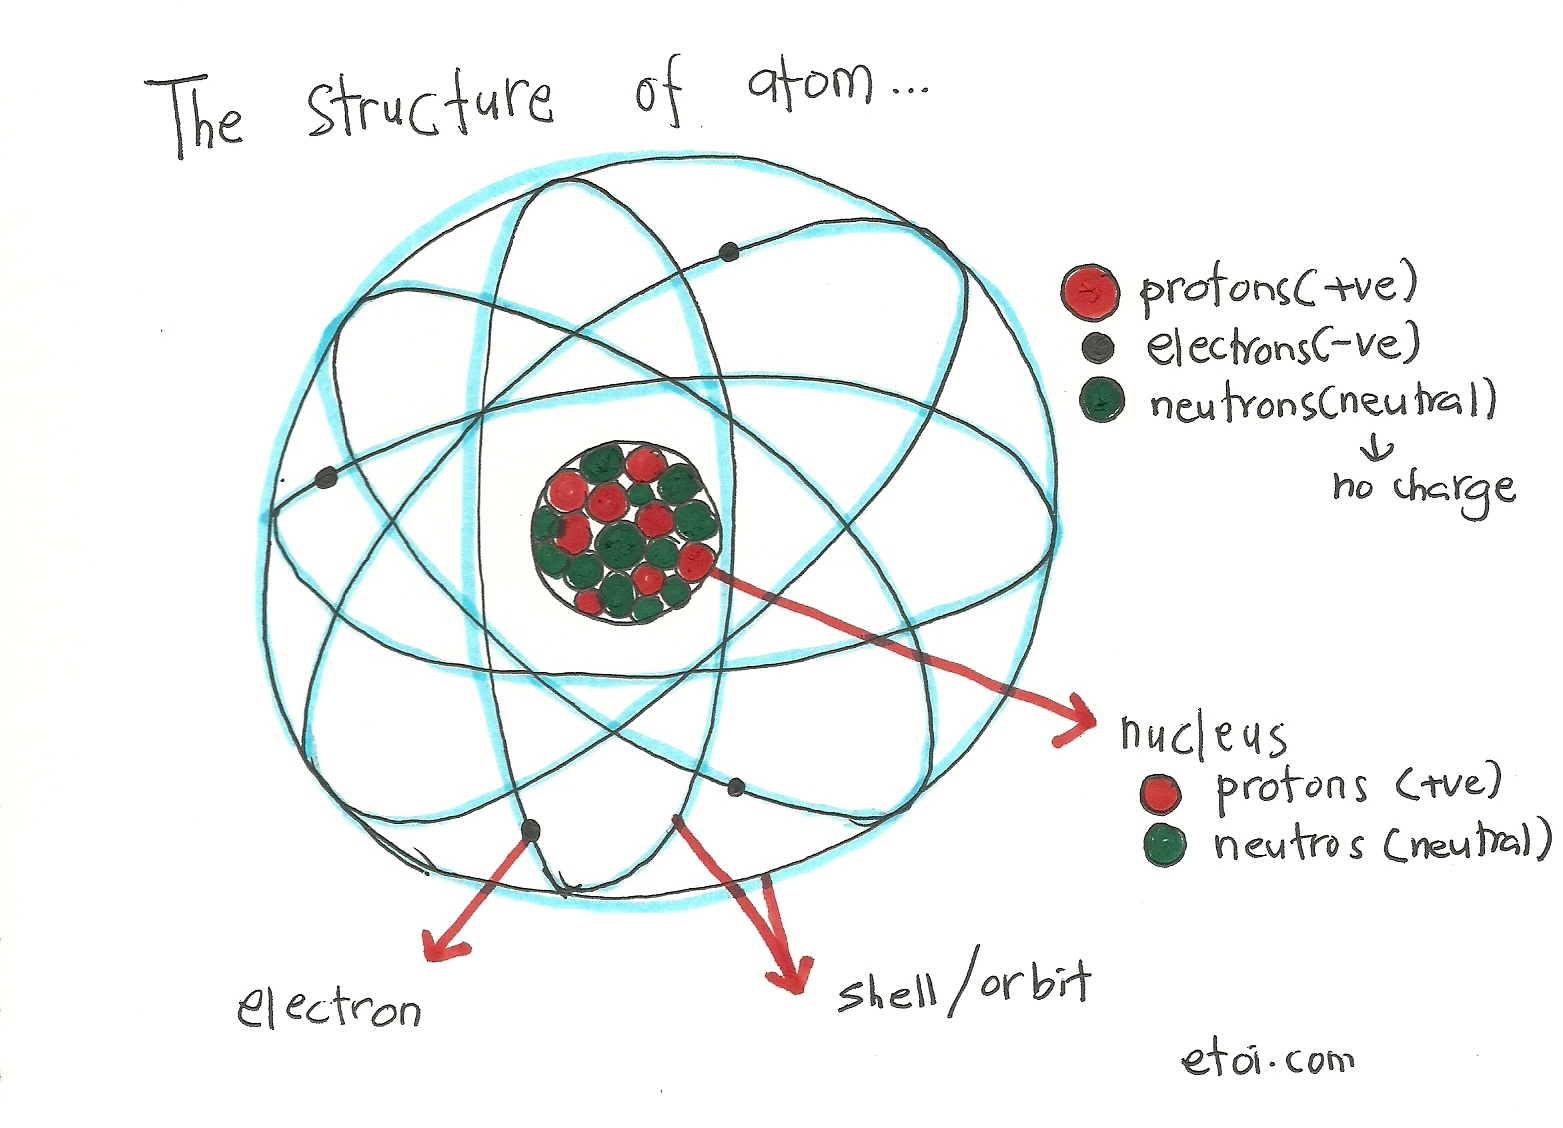 The structure of atom...
protons(+ve)
electrons(-ve)
neutrons(neutral)
↓
no charge
nucleus
protons (+ve)
neutros (neutral)
electron
shell/orbit
etoi.com